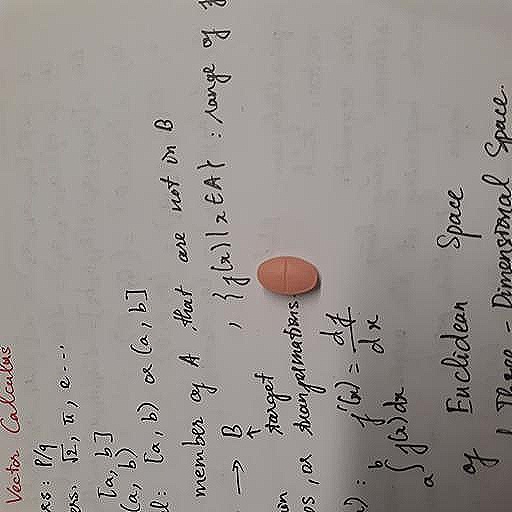 Vector Calculus
rs: P/q
rs. √2, π, e ...
[a, b]
(a, b)
: [a, b) or (a, b]
member of A that are not in B
→ B , {f(x) | x ∈ A} : range of f
↑
target
os, or transformations.
) : f'(x) = df/dx
a∫b f(x) dx
of Euclidean Space
Three - Dimensional Space.